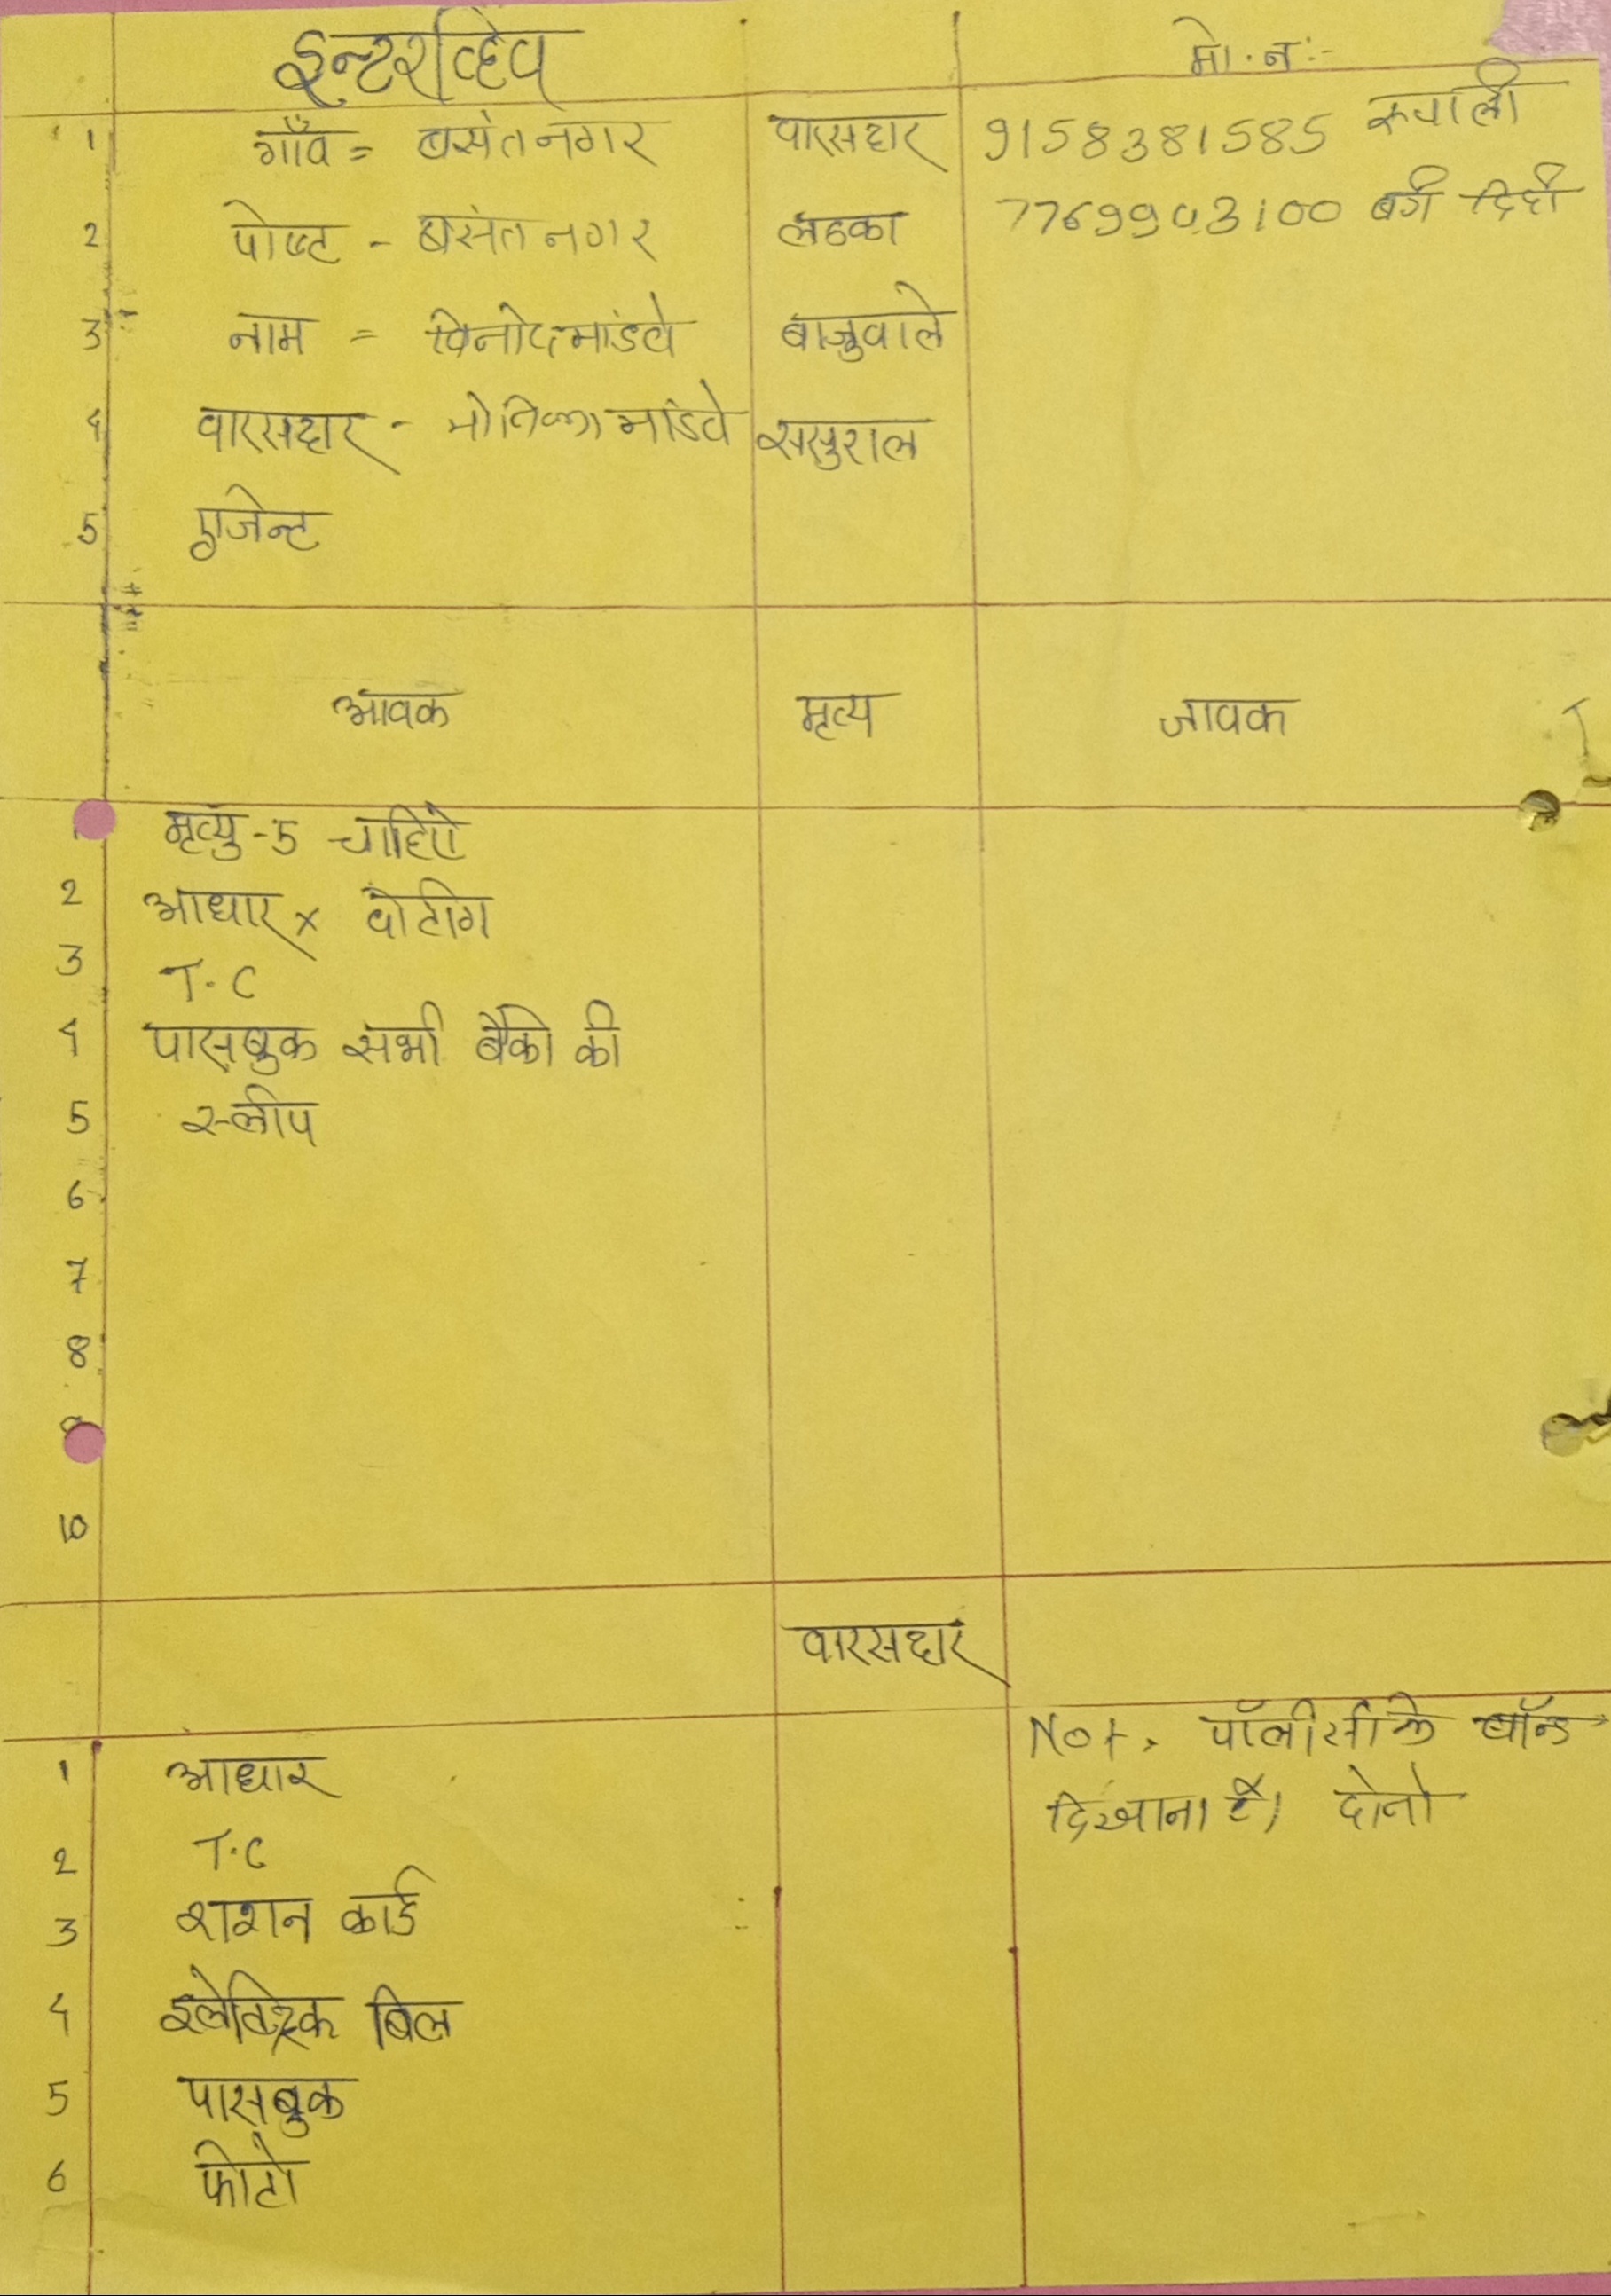 इन्टरव्हिव
मो.न:-
1 गाँव = बसंतनगर वारसदार 9158381585 रूपाली
2 पोष्ट - बसंतनगर लडका 7769903100 दिदी
3 नाम = विनोद मांडवे बाजुवाले
4 वारसदार - मोनिका मांडवे ससुराल
5 एजेन्ट
आवक मृत्य जावक
1 मृत्यु-5 चाहिऐ
2 आधार x वोटींग
3 T.C
4 पासबुक सभी बैंको की
5 स्लीप
6
7
8
9
10
वारसदार
Not, पॉलीसी के बॉन्ड
1 आधार
दिखाना है। दोनो
2 T.C
3 राशन कार्ड
4 इलेक्ट्रिक बिल
5 पासबुक
6 फोटो